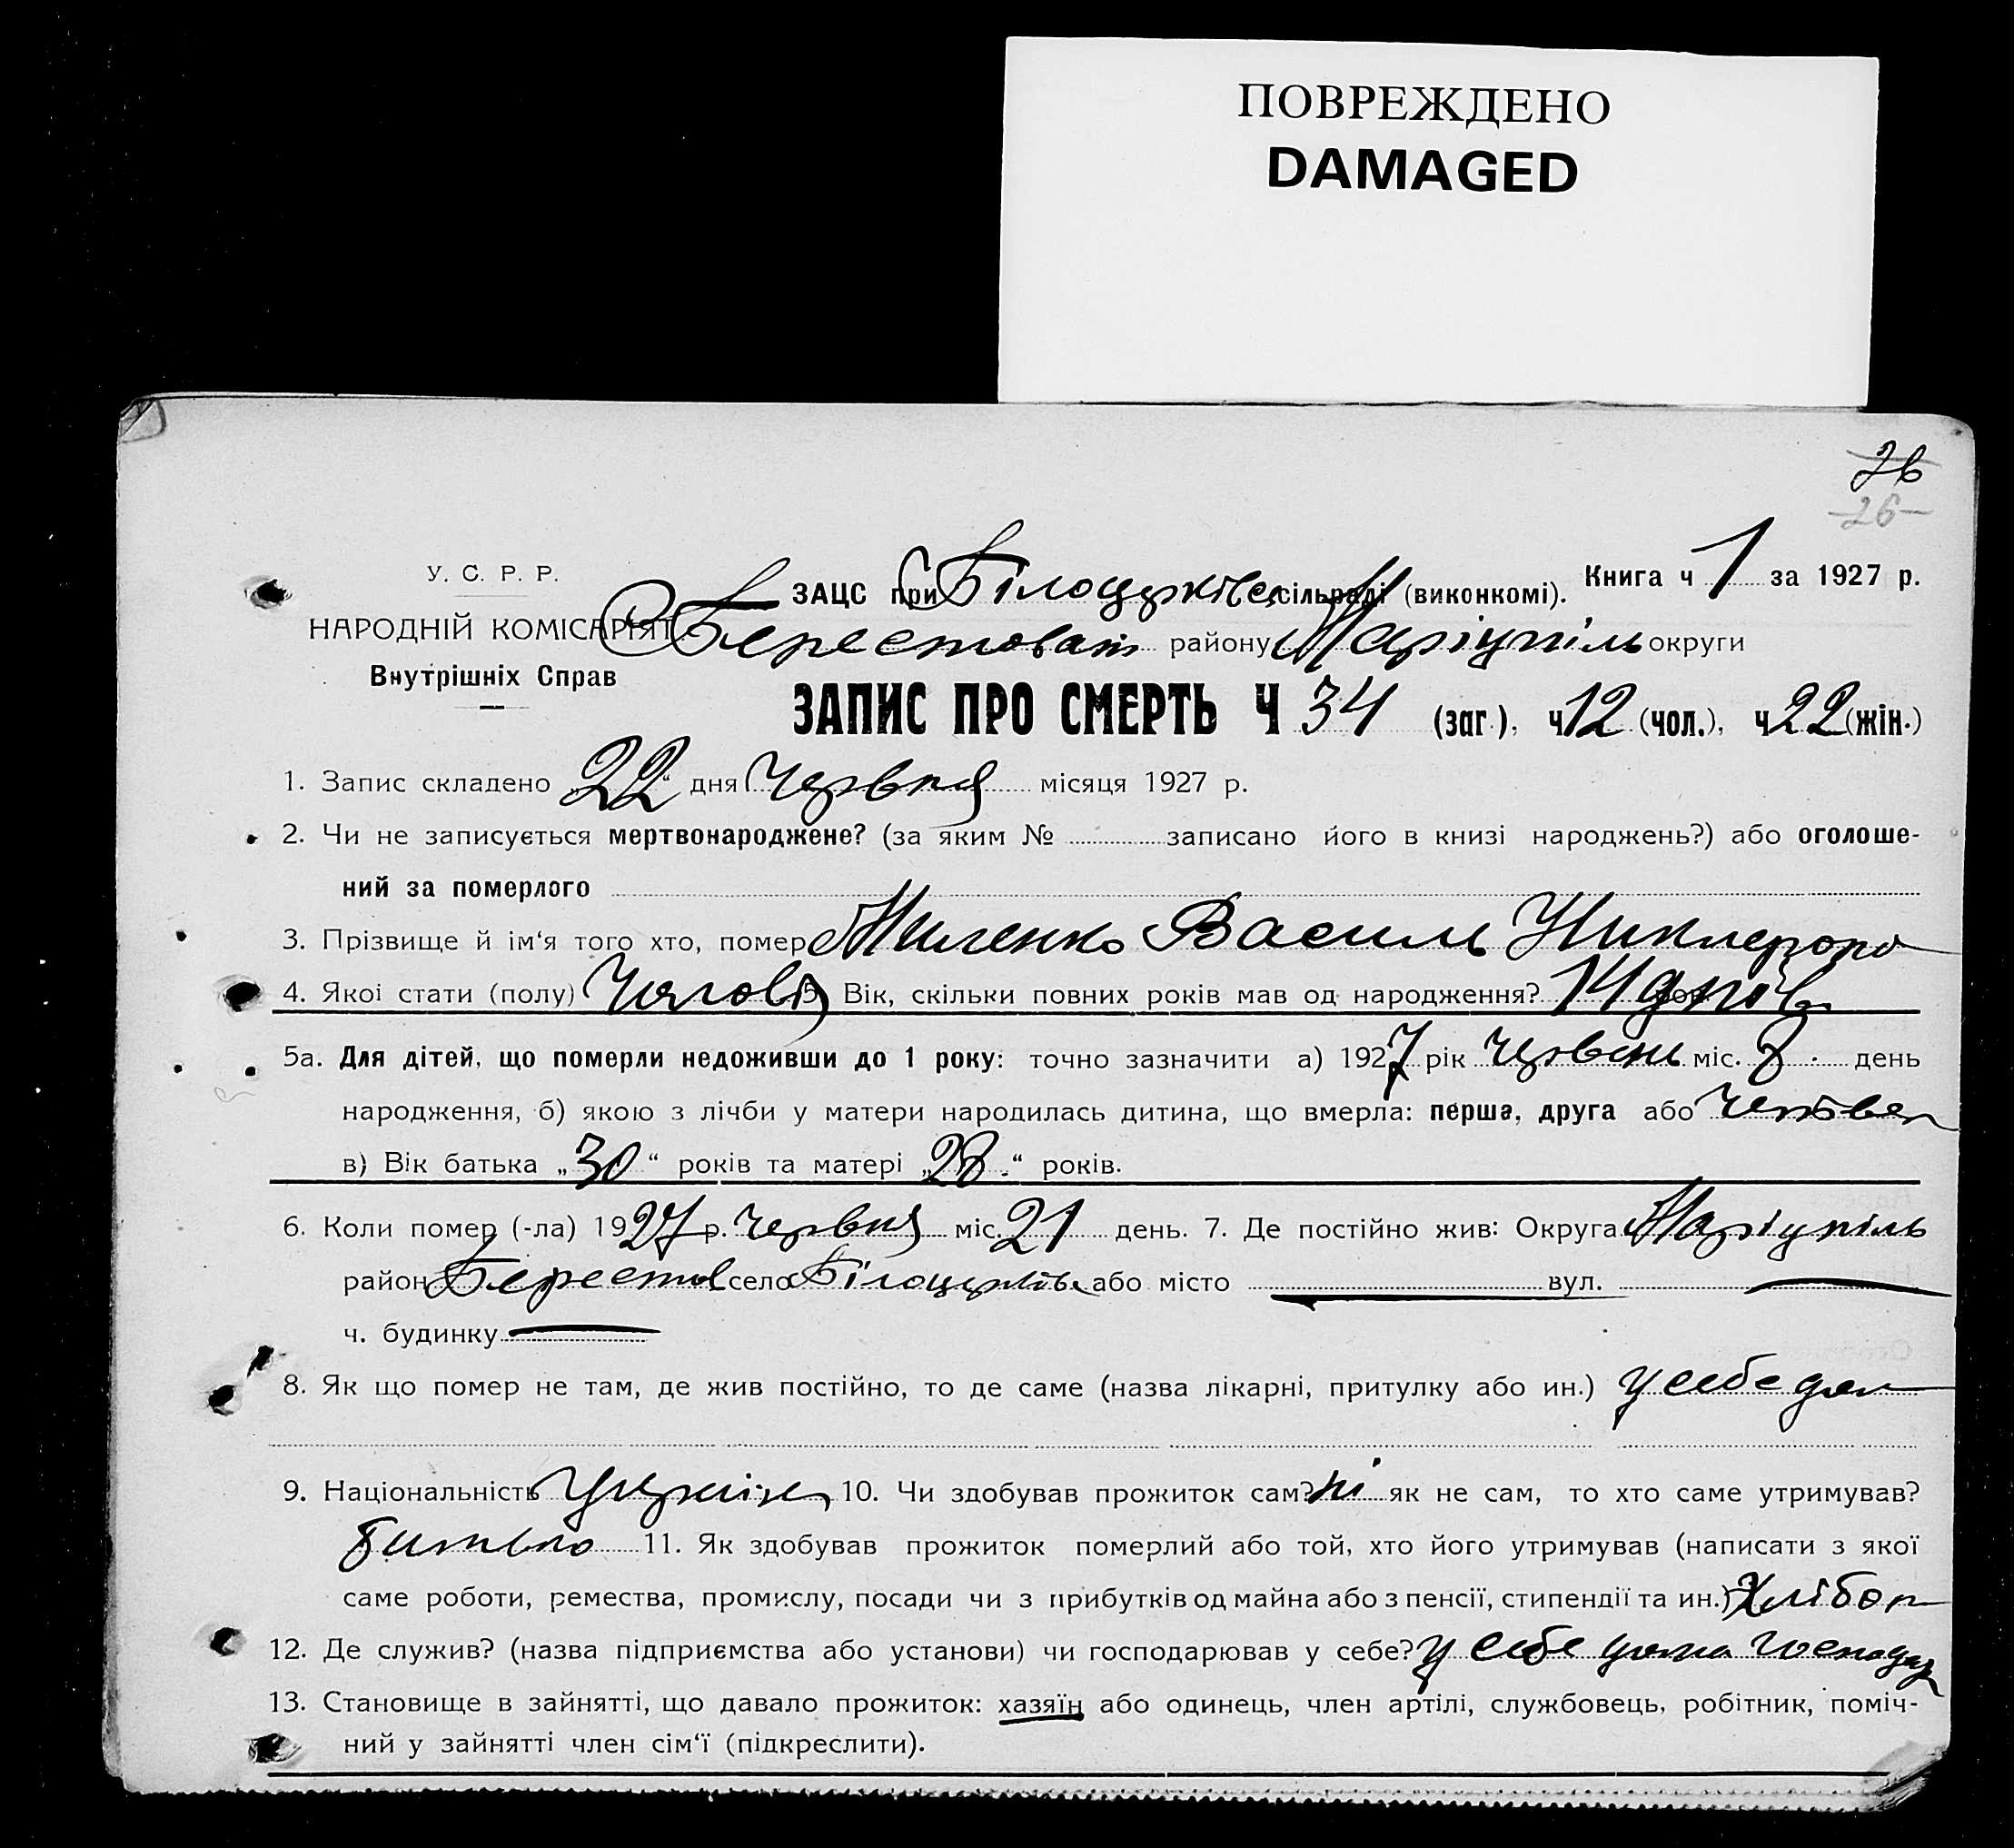 ПОВРЕЖДЕНО
DAMAGED
26
26
У. С. Р. Р.
НАРОДНІЙ КОМІСАРІЯТ
Внутрішніх Справ
ЗАЦС при Білоцерківс сільраді (виконкомі). Книга ч 1 за 1927 р.
Берестоват району Маріупіль округи
ЗАПИС ПРО СМЕРТЬ Ч 34 (заг.), ч 12 (чол.), ч 22 (жін.)
1. Запис складено „22“ дня Червня місяця 1927 р.
2. Чи не записується мертвонароджене? (за яким № записано його в книзі народжень?) або оголоше-
ний за померлого
3. Прізвище й ім‘я того хто, помер Василь
4. Якої стати (полу) Чолові 5. Вік, скільки повних років мав од народження? 14 днів
5а. Для дітей, що померли недоживши до 1 року: точно зазначити а) 1927 рік червень міс. 8 день
народження, б) якою з лічби у матери народилась дитина, що вмерла: перша, друга або четвер
в) Вік батька „30“ років та матері „28“ років.
6. Коли помер (-ла) 1927 р. червня міс. 21 день. 7. Де постійно жив: Округа Маріупіль
район Берестов село Білоцерків або місто вул.
ч. будинку
8. Як що помер не там, де жив постійно, то де саме (назва лікарні, притулку або ин.) у себе дом
9. Національність 10. Чи здобував прожиток сам? ні як не сам, то хто саме утримував?
батько 11. Як здобував прожиток померлий або той, хто його утримував (написати з якої
саме роботи, ремества, промислу, посади чи з прибутків од майна або з пенсії, стипендії та ин.) хлібор
12. Де служив? (назва підприємства або установи) чи господарював у себе? у себе дома господар
13. Становище в зайнятті, що давало прожиток: хазяїн або одинець, член артілі, службовець, робітник, поміч-
ний у зайнятті член сім‘ї (підкреслити).